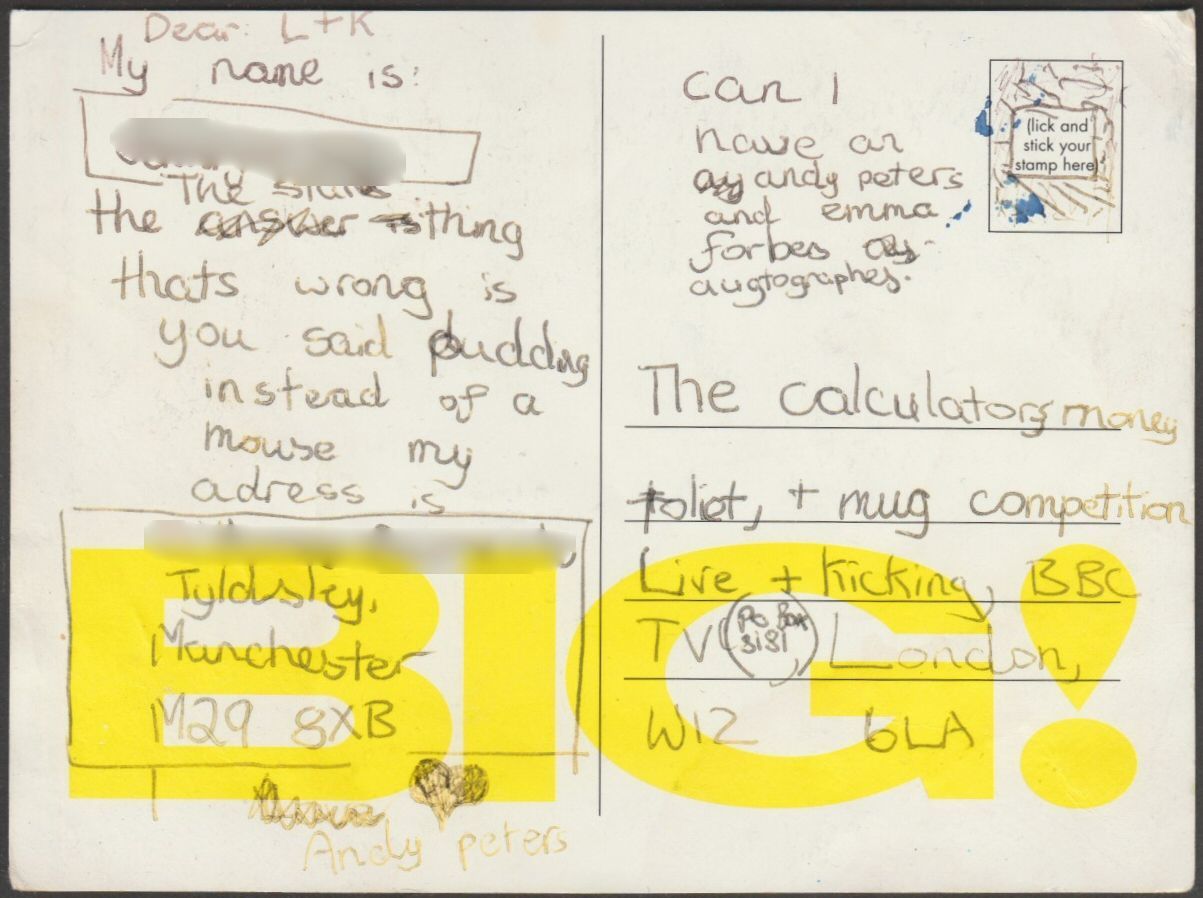 Dear L+K
My name is:
The
the thing
thats wrong is
you said pudding
instead of a
mouse my
adress is
Tyldsley,
Manchester
M29 8XB
Andy peters
can I
have an
andy peters
and emma
forbes
augtographes.
(lick and
stick your
stamp here)
The calculator, money
toliet, + mug competition
Live + Kicking, BBC
TV (PO BOX
3151) London,
W12 6LA
BIG!